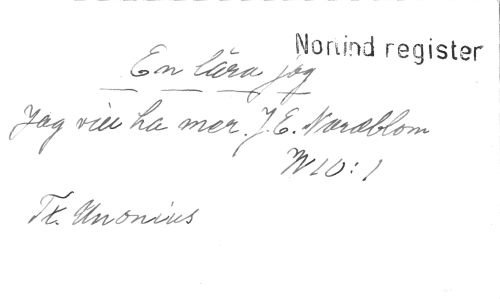 Norlind register
En lära jag
Jag vill ha mer. J. E. Nordblom
N 10:1
Tx. Unonius